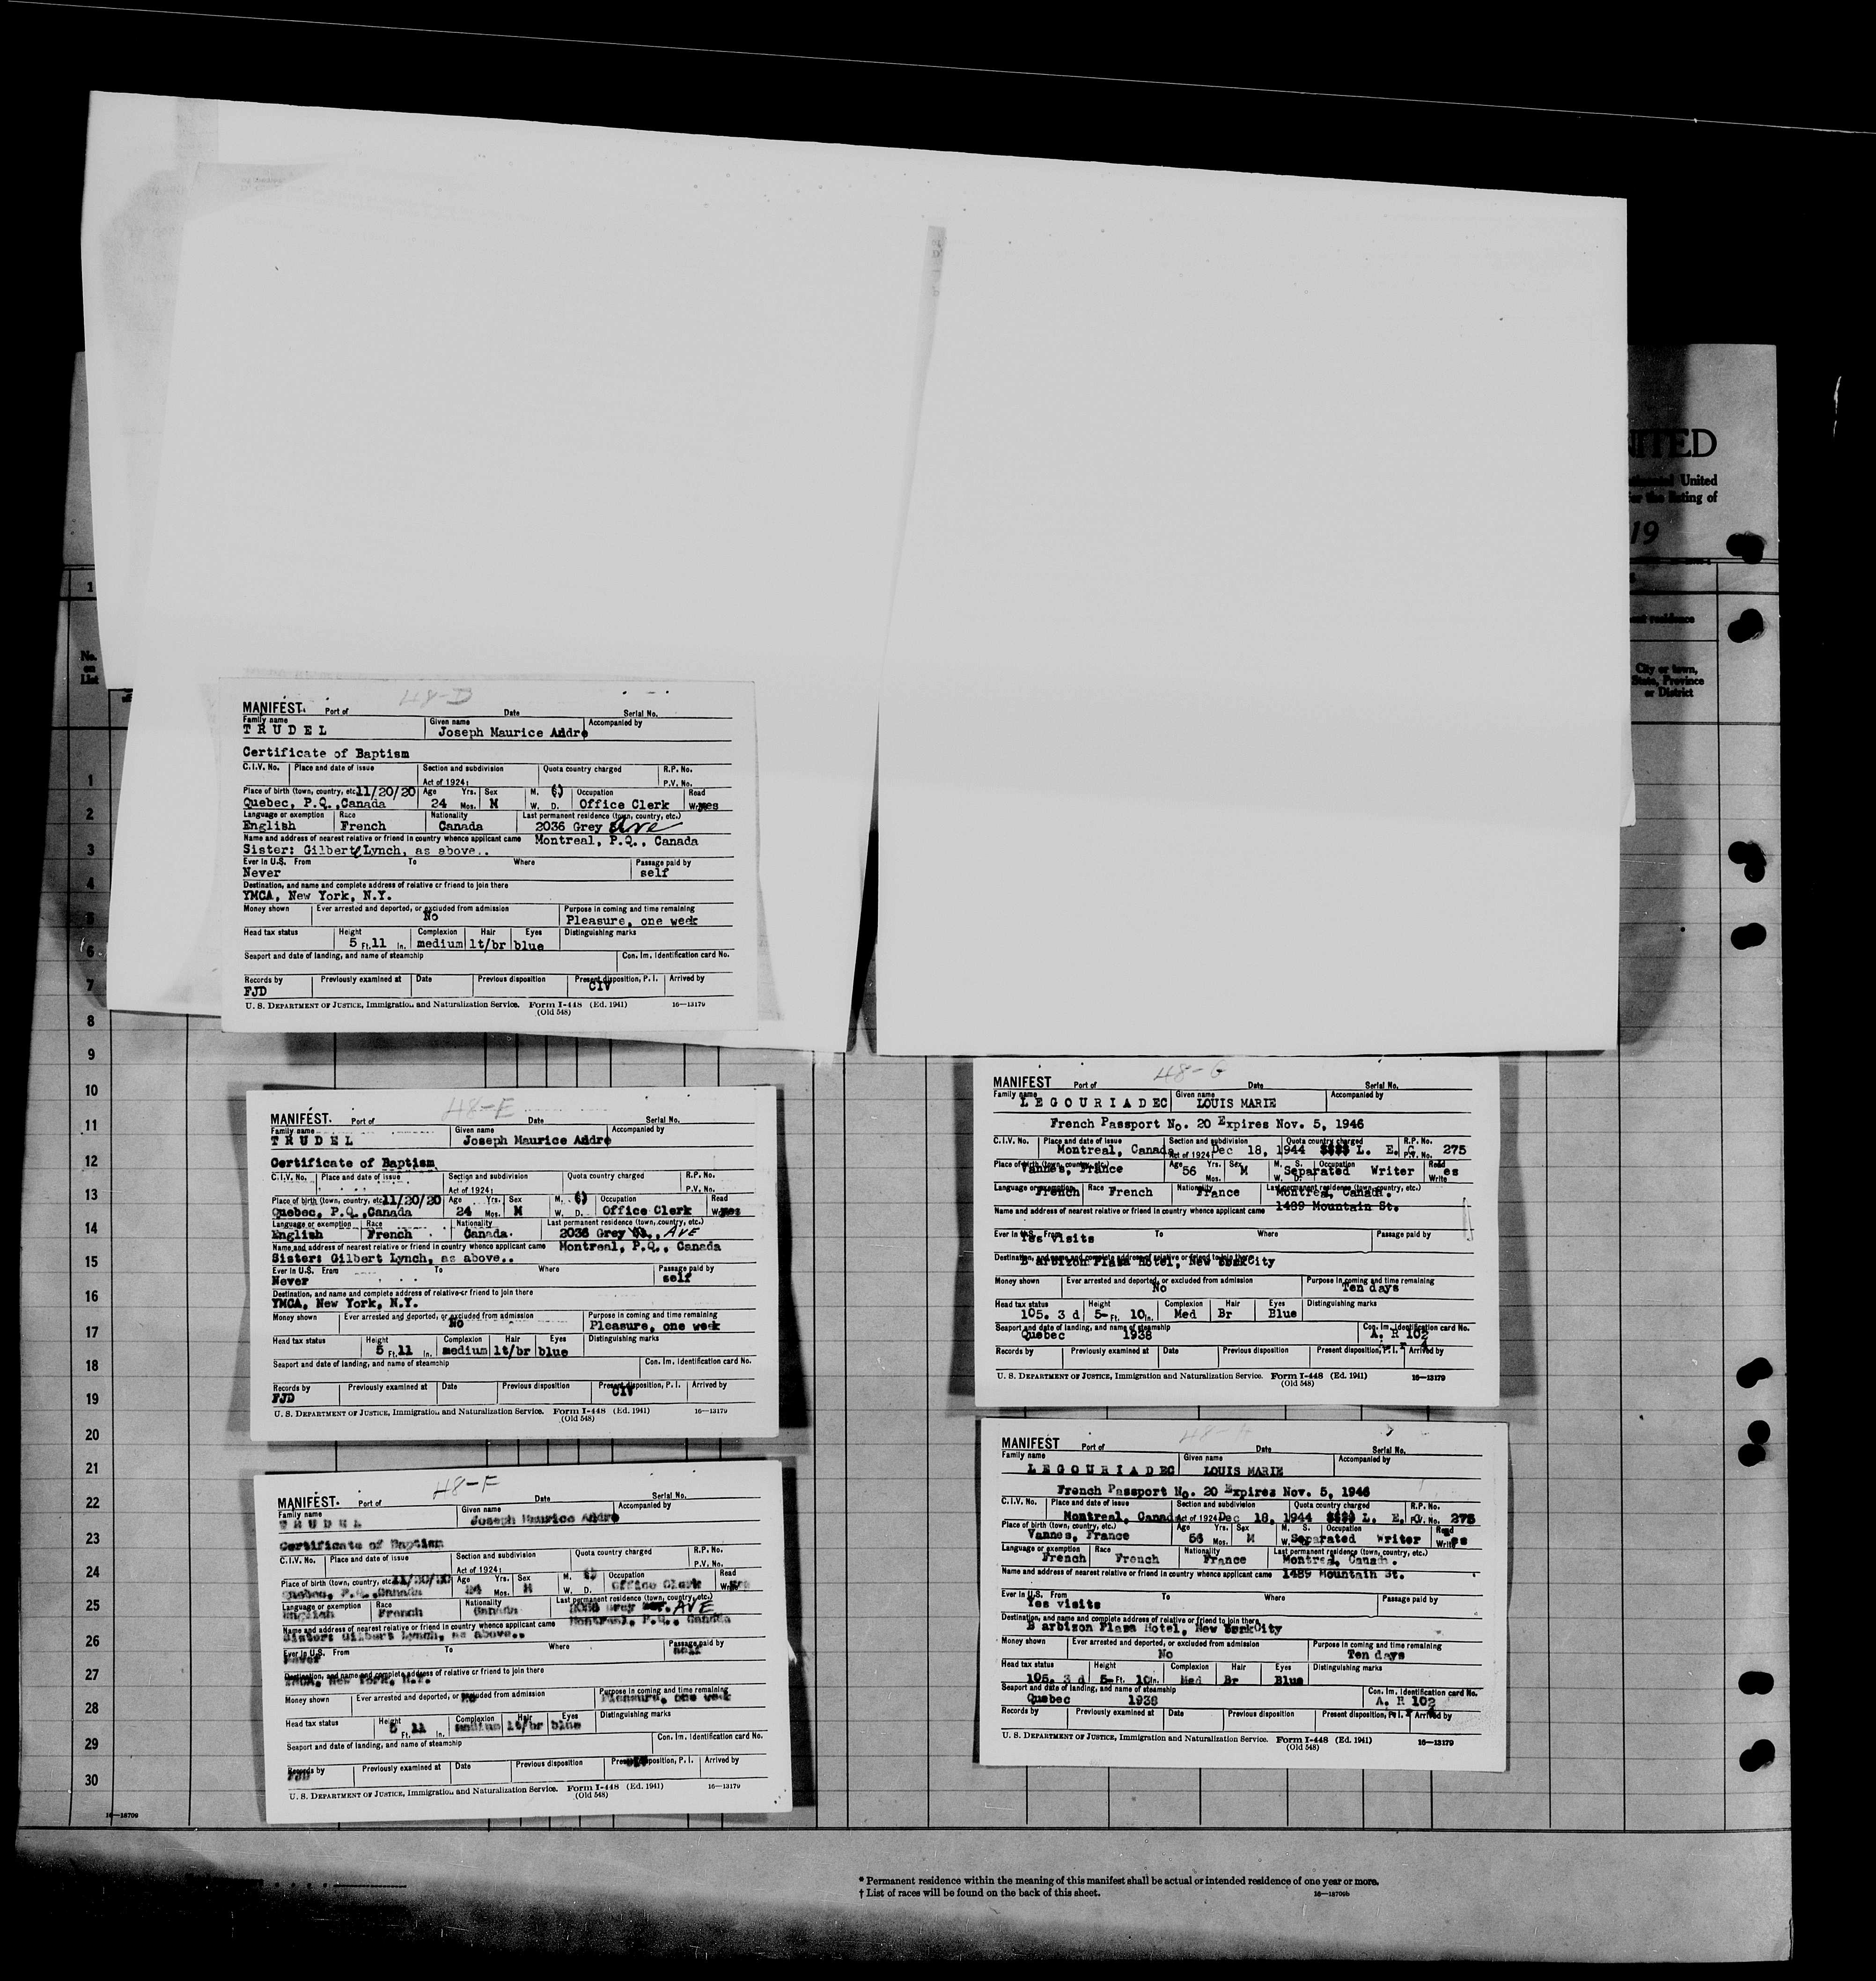 NITED
United
for the listing of
19
1
No.
on
List
City or town,
State, Province
or District
1
2
3
4
5
6
7
8
9
10
11
12
13
14
15
16
17
18
19
20
21
22
23
24
25
26
27
28
29
30
48-D
MANIFEST. Port of Date Serial No.
Family name Given name Accompanied by
TRUDEL Joseph Maurice Andre
Certificate of Baptism
C.I.V. No. Place and date of issue Section and subdivision Quota country charged R.P. No.
Act of 1924: P.V. No.
Place of birth (town, country, etc. 11/20/20 Age Yrs. Sex M. S. Occupation Read
Quebec, P.Q.,Canada 24 Mos. M W. D. Office Clerk Wr yes
Language or exemption Race Nationality Last permanent residence (town, country, etc.)
English French Canada 2036 Grey Ave
Name and address of nearest relative or friend in country whence applicant came Montreal, P.Q., Canada
Sister: Gilberte Lynch, as above..
Ever in U.S. From To Where Passage paid by
Never self
Destination, and name and complete address of relative or friend to join there
YMCA, New York, N.Y.
Money shown Ever arrested and deported, or excluded from admission Purpose in coming and time remaining
No Pleasure, one week
Head tax status Height Complexion Hair Eyes Distinguishing marks
5 Ft. 11 In. medium lt/br blue
Seaport and date of landing, and name of steamship Con. Im. Identification card No.
Records by Previously examined at Date Previous disposition Present disposition, P. I. Arrived by
FJD CIV
U. S. DEPARTMENT OF JUSTICE, Immigration and Naturalization Service. Form I-448 (Ed. 1941) 16—13179
(Old 548)
48-E
MANIFEST. Port of Date Serial No.
Family name Given name Accompanied by
TRUDEL Joseph Maurice Andre
Certificate of Baptism
C.I.V. No. Place and date of issue Section and subdivision Quota country charged R.P. No.
Act of 1924: P.V. No.
Place of birth (town, country, etc. 11/20/20 Age Yrs. Sex M. S. Occupation Read
Quebec, P.Q.,Canada 24 Mos. M W. D. Office Clerk Wr yes
Language or exemption Race Nationality Last permanent residence (town, country, etc.)
English French Canada. 2036 Grey AVE
Name and address of nearest relative or friend in country whence applicant came Montreal, P.Q., Canada
Sister: Gilbert Lynch, as above..
Ever in U.S. From To Where Passage paid by
Never self
Destination, and name and complete address of relative or friend to join there
YMCA, New York, N.Y.
Money shown Ever arrested and deported, or excluded from admission Purpose in coming and time remaining
No Pleasure, one week
Head tax status Height Complexion Hair Eyes Distinguishing marks
5 Ft. 11 In. medium lt/br blue
Seaport and date of landing, and name of steamship Con. Im. Identification card No.
Records by Previously examined at Date Previous disposition Present disposition, P. I. Arrived by
FJD CIV
U. S. DEPARTMENT OF JUSTICE, Immigration and Naturalization Service. Form I-448 (Ed. 1941) 16—13179
(Old 548)
48-F
MANIFEST. Port of Date Serial No.
Family name Given name Accompanied by
TRUDEL Joseph Maurice Andre
Certificate of Baptism
C.I.V. No. Place and date of issue Section and subdivision Quota country charged R.P. No.
Act of 1924: P.V. No.
Place of birth (town, country, etc. 11/20/20 Age Yrs. Sex M. S. Occupation Read
Quebec, P.Q.,Canada 24 Mos. M W. D. Office Clerk
Language or exemption Race Nationality Last permanent residence (town, country, etc.)
English French Canada 2036 Grey AVE
Name and address of nearest relative or friend in country whence applicant came Montreal, P.Q., Canada
Sister: Gilbert Lynch, as above..
Ever in U.S. From To Where Passage paid by
Never self
Destination, and name and complete address of relative or friend to join there
YMCA, New York, N.Y.
Money shown Ever arrested and deported, or excluded from admission Purpose in coming and time remaining
No Pleasure, one week
Head tax status Height Complexion Hair Eyes Distinguishing marks
5 Ft. 11 In. medium lt/br blue
Seaport and date of landing, and name of steamship Con. Im. Identification card No.
Records by Previously examined at Date Previous disposition Present disposition, P. I. Arrived by
FJD
U. S. DEPARTMENT OF JUSTICE, Immigration and Naturalization Service. Form I-448 (Ed. 1941) 16—13179
(Old 548)
48-G
MANIFEST Port of Date Serial No.
Family name Given name Accompanied by
LEGOURIADEC LOUIS MARIE
French Passport No. 20 Expires Nov. 5, 1946
C.I.V. No. Place and date of issue Section and subdivision Quota country charged R.P. No.
Montreal, Canada Act of 1924 Dec 18, 1944 L. E. C P.V. No. 275
Place of birth (town, country, etc.) Age Yrs. Sex M. S. Occupation Read
Vannes, France 56 Mos. M W. D. Separated Writer es Write
Language or exemption Race Nationality Last permanent residence (town, country, etc.)
French French France Montreal, Canada.
Name and address of nearest relative or friend in country whence applicant came 1489 Mountain St.
Ever in U.S. From To Where Passage paid by
Yes visits
Destination, and name and complete address of relative or friend to join there
B arbizon Plaza Hotel, New York City
Money shown Ever arrested and deported, or excluded from admission Purpose in coming and time remaining
No Ten days
Head tax status Height Complexion Hair Eyes Distinguishing marks
105. 3 d 5- Ft. 10 In. Med Br Blue
Seaport and date of landing, and name of steamship Con. Im. Identification card No.
Quebec 1938 A. R 102
Records by Previously examined at Date Previous disposition Present disposition, P. I. Arrived by
U. S. DEPARTMENT OF JUSTICE, Immigration and Naturalization Service. Form I-448 (Ed. 1941) 16—13179
(Old 548)
48-H
MANIFEST Port of Date Serial No.
Family name Given name Accompanied by
LEGOURIADEC LOUIS MARIE
French Passport No. 20 Expires Nov. 5, 1946
C.I.V. No. Place and date of issue Section and subdivision Quota country charged R.P. No.
Montreal, Canada Act of 1924 Dec 18, 1944 L. E. C P.V. No. 275
Place of birth (town, country, etc.) Age Yrs. Sex M. S. Occupation Read
Vannes, France 56 Mos. M W. D. Separated Writer Write es
Language or exemption Race Nationality Last permanent residence (town, country, etc.)
French French France Montreal, Canada.
Name and address of nearest relative or friend in country whence applicant came 1489 Mountain St.
Ever in U.S. From To Where Passage paid by
Yes visits
Destination, and name and complete address of relative or friend to join there
B arbizon Plaza Hotel, New York City
Money shown Ever arrested and deported, or excluded from admission Purpose in coming and time remaining
No Ten days
Head tax status Height Complexion Hair Eyes Distinguishing marks
105. 3 d 5- Ft. 10 In. Med Br Blue
Seaport and date of landing, and name of steamship Con. Im. Identification card No.
Quebec 1938 A. R 102
Records by Previously examined at Date Previous disposition Present disposition, P. I. Arrived by
U. S. DEPARTMENT OF JUSTICE, Immigration and Naturalization Service. Form I-448 (Ed. 1941) 16—13179
(Old 548)
16—18709
* Permanent residence within the meaning of this manifest shall be actual or intended residence of one year or more.
† List of races will be found on the back of this sheet. 16—18709b